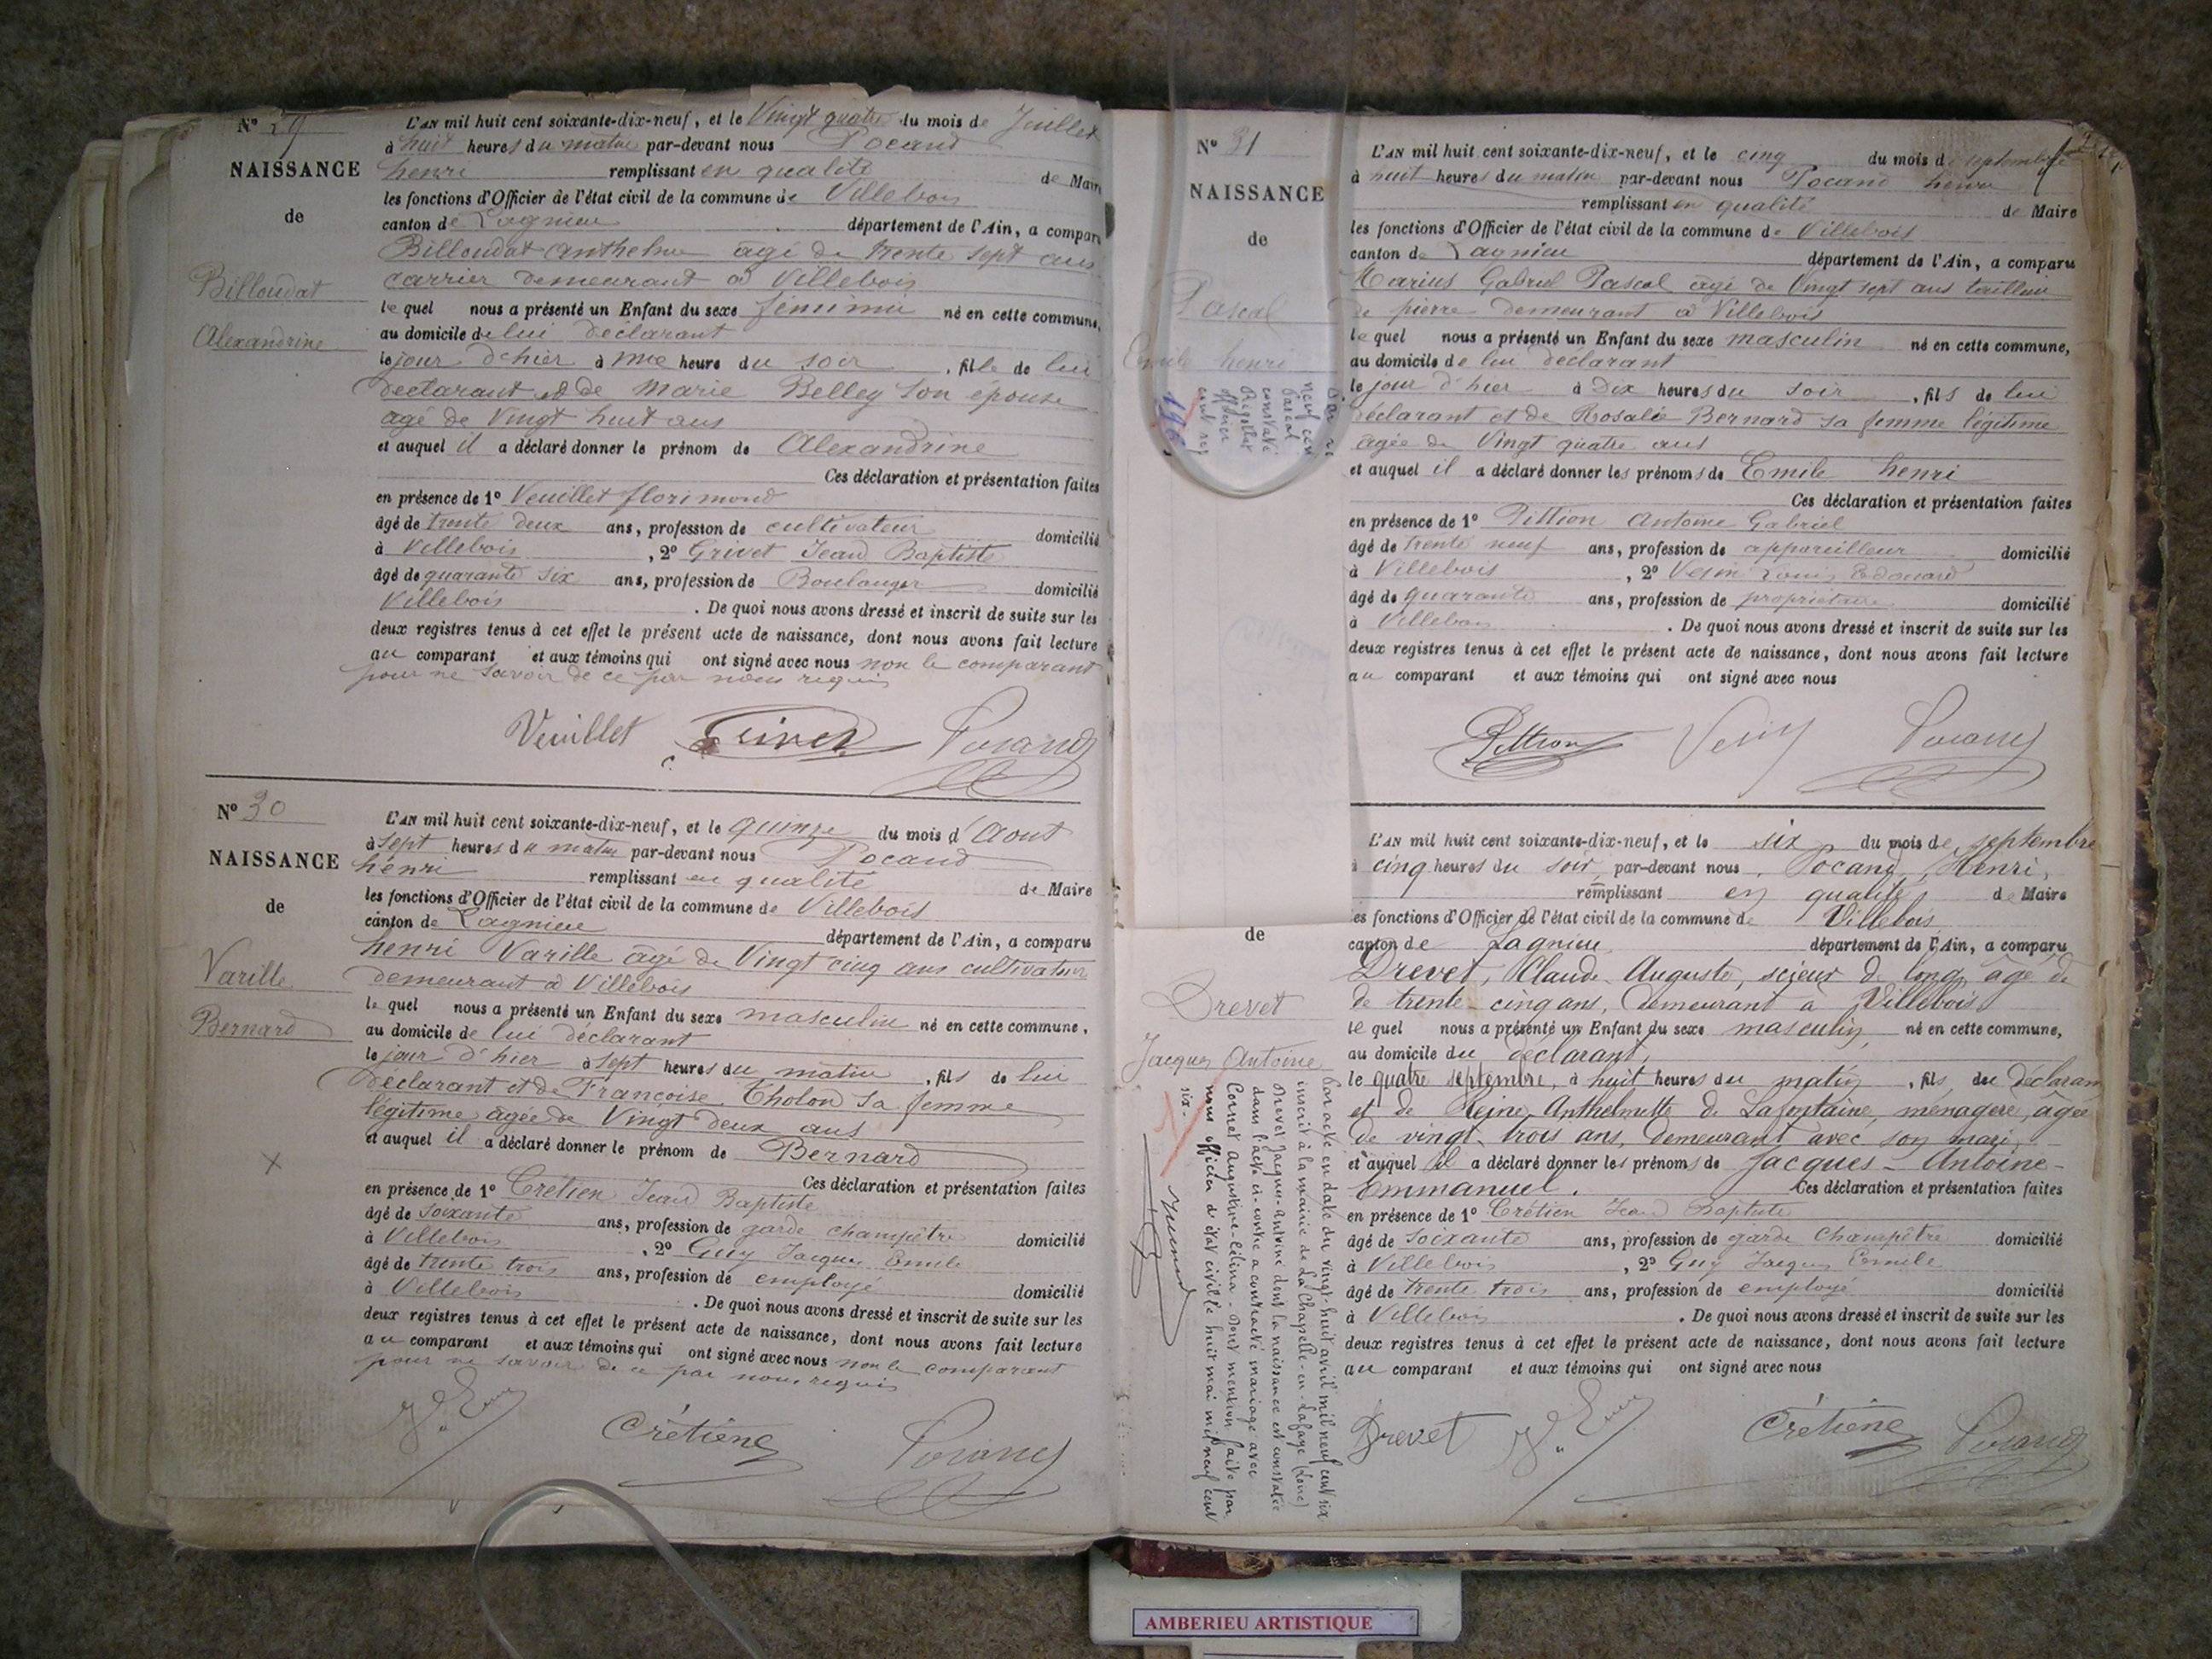 N° 29
NAISSANCE
de
Billoudat
Alexandrine
L'AN mil huit cent soixante-dix-neuf, et le Vingt quatre du mois de Juillet
à huit heures du matin par-devant nous Pocand
henri remplissant en qualité de Maire
les fonctions d'Officier de l'état civil de la commune de Villebois
canton de Lagnieu département de l'Ain, a comparu
Billoudat anthelme agé de trente sept ans
carrier demeurant à Villebois
lequel nous a présenté un Enfant du sexe féminin né en cette commune,
au domicile de lui déclarant
le jour d'hier à heure du soir, fille de lui
déclarant et de Marie Belley son épouse
agé de Vingt huit ans
et auquel il a déclaré donner le prénom de Alexandrine
Ces déclaration et présentation faites
en présence de 1° Veuillet florimond
âgé de trente deux ans, profession de cultivateur domicilié
à Villebois, 2° Grivet Jean Baptiste
âgé de quarante six ans, profession de Boulanger domicilié
Villebois. De quoi nous avons dressé et inscrit de suite sur les
deux registres tenus à cet effet le présent acte de naissance, dont nous avons fait lecture
au comparant et aux témoins qui ont signé avec nous non le comparant
pour ne savoir de ce par nous requis
Veuillet Grivet Pocand
N° 30
NAISSANCE
de
Varille
Bernard
L'AN mil huit cent soixante-dix-neuf, et le quinze du mois d'Aout
à sept heures du matin par-devant nous Pocand
henri remplissant en qualité de Maire
les fonctions d'Officier de l'état civil de la commune de Villebois
canton de Lagnieu département de l'Ain, a comparu
henri Varille agé de Vingt cinq ans cultivateur
demeurant à Villebois
lequel nous a présenté un Enfant du sexe masculin né en cette commune,
au domicile de lui déclarant
le jour d'hier à sept heures du matin, fils de lui
déclarant et de Françoise Tholon sa femme
légitime agée de Vingt deux ans
et auquel il a déclaré donner le prénom de Bernard
Ces déclaration et présentation faites
en présence de 1° Crétien Jean Baptiste
âgé de soixante ans, profession de garde champêtre domicilié
à Villebois, 2° Guy Jacques Emile
âgé de trente trois ans, profession de employé domicilié
à Villebois. De quoi nous avons dressé et inscrit de suite sur les
deux registres tenus à cet effet le présent acte de naissance, dont nous avons fait lecture
au comparant et aux témoins qui ont signé avec nous non le comparant
pour ne savoir de ce par nous requis
Crétien Pocand
N° 31
NAISSANCE
de
Pascal
Emile henri
L'AN mil huit cent soixante-dix-neuf, et le cinq du mois de septembre
à huit heures du matin par-devant nous Pocand henri
remplissant en qualité de Maire
les fonctions d'Officier de l'état civil de la commune de Villebois
canton de Lagnieu département de l'Ain, a comparu
Marius Gabriel Pascal agé de Vingt sept ans tailleur
de pierre demeurant à Villebois
lequel nous a présenté un Enfant du sexe masculin né en cette commune,
au domicile de lui déclarant
le jour d'hier à Dix heures du soir, fils de lui
déclarant et de Rosalie Bernard sa femme légitime
agée de Vingt quatre ans
et auquel il a déclaré donner les prénoms de Emile henri
Ces déclaration et présentation faites
en présence de 1° Pittion Antoine Gabriel
âgé de trente neuf ans, profession de appareilleur domicilié
à Villebois, 2° Louis Edouard
âgé de quarante ans, profession de propriétaire domicilié
à Villebois. De quoi nous avons dressé et inscrit de suite sur les
deux registres tenus à cet effet le présent acte de naissance, dont nous avons fait lecture
au comparant et aux témoins qui ont signé avec nous
Pittion Pocand
de
Drevet
Jacques Antoine
L'AN mil huit cent soixante-dix-neuf, et le six du mois de septembre
à cinq heures du soir, par-devant nous, Pocand, Henri,
remplissant en qualité de Maire
les fonctions d'Officier de l'état civil de la commune de Villebois
canton de Lagnieu département de l'Ain, a comparu
Drevet, Claude Auguste, scieur de long, âgé de
de trente-cinq ans, demeurant à Villebois
lequel nous a présenté un Enfant du sexe masculin, né en cette commune,
au domicile du déclarant,
le quatre septembre, à huit heures du matin, fils du déclarant
et de Reine Anthelmette de Lafontaine, ménagère, âgée
de vingt-trois ans, demeurant avec son mari,
et auquel il a déclaré donner les prénoms de Jacques-Antoine-
Emmanuel. Ces déclaration et présentation faites
en présence de 1° Crétien Jean Baptiste
âgé de soixante ans, profession de garde champêtre domicilié
à Villebois, 2° Guy Jacques Emile
âgé de trente trois ans, profession de employé domicilié
à Villebois. De quoi nous avons dressé et inscrit de suite sur les
deux registres tenus à cet effet le présent acte de naissance, dont nous avons fait lecture
au comparant et aux témoins qui ont signé avec nous
Drevet Crétien Pocand
Par acte en date du vingt-huit avril mil neuf cent six
inscrit à la mairie de La Chapelle-en-Lafaye (Loire)
Drevet Jacques-Antoine dont la naissance est constatée
dans l'acte ci-contre a contracté mariage avec
Cornet Augustine-Célina - Dont mention faite par
nous officier d'état civil le huit mai mil neuf cent
six.
AMBERIEU ARTISTIQUE